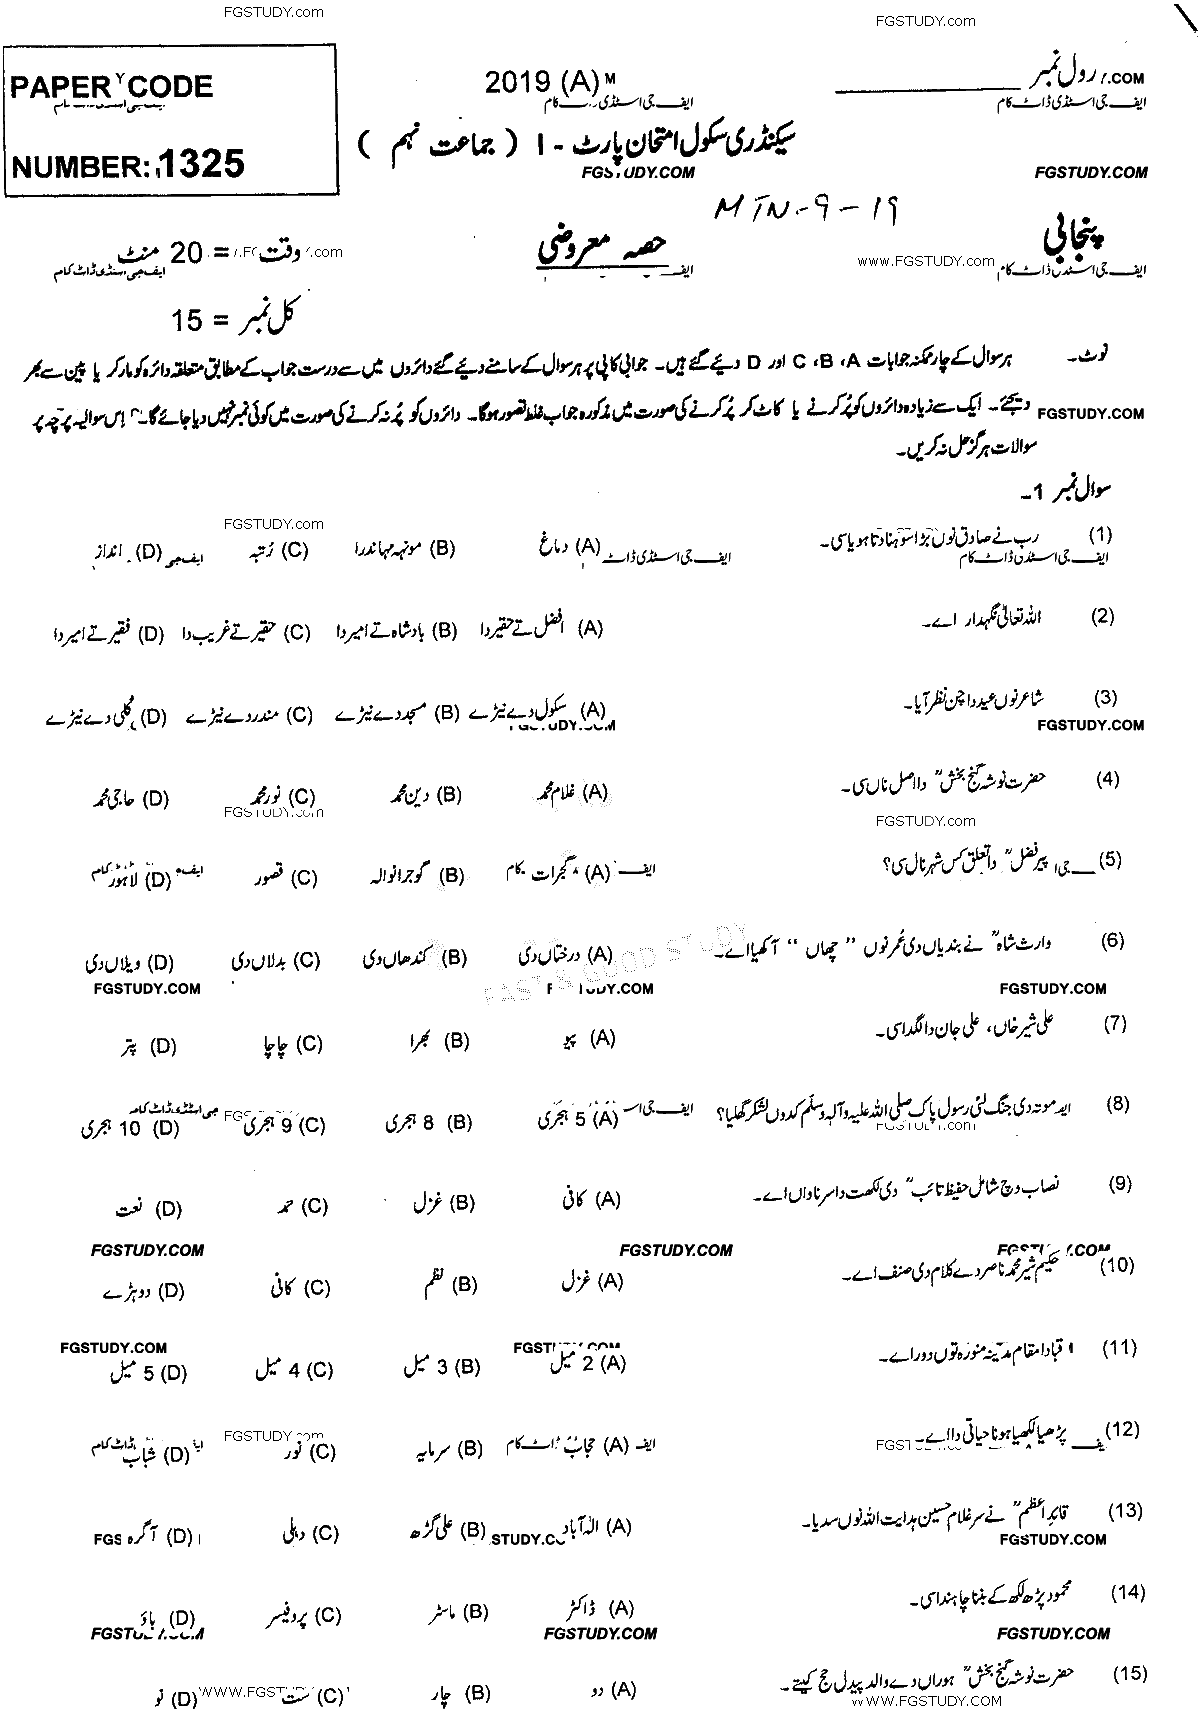 FGSTUDY.com
FGSTUDY.com
PAPER CODE
2019 (A)
رول نمبر ____________ .COM
ایف جی اسٹڈی ڈاٹ کام
NUMBER: 1325
سیکنڈری سکول امتحان پارٹ - I ( جماعت نہم )
FGSTUDY.COM
FGSTUDY.COM
MTN-9-19
پنجابی
حصہ معروضی
وقت = 20 منٹ
www.FGSTUDY.com
ایف جی اسٹڈی ڈاٹ کام
ایف جی اسٹڈی ڈاٹ کام
کل نمبر = 15
نوٹ۔ ہر سوال کے چار ممکنہ جوابات A، B، C اور D دیئے گئے ہیں۔ جوابی کاپی پر ہر سوال کے سامنے دیئے گئے دائروں میں سے درست جواب کے مطابق متعلقہ دائرہ کو مارکر یا پین سے بھر
دیجئے۔ ایک سے زیادہ دائروں کو پُر کرنے یا کاٹ کر پُر کرنے کی صورت میں مذکورہ جواب غلط تصور ہوگا۔ دائروں کو پُر نہ کرنے کی صورت میں کوئی نمبر نہیں دیا جائے گا۔ اس سوالیہ پرچہ پر
FGSTUDY.COM
سوالات ہرگز حل نہ کریں۔
سوال نمبر 1۔
FGSTUDY.com
(1) رب نے صادق نوں بڑا سوہنا دتا ہویا سی۔
(A) دماغ (B) مونہہ مہاندرا (C) رُتبہ (D) انداز
(2) اللہ تعالیٰ نگہدار اے۔
(A) افضل تے حقیر دا (B) بادشاہ تے امیر دا (C) حقیر تے غریب دا (D) فقیر تے امیر دا
(3) شاعر نوں عید دا چن نظر آیا۔
FGSTUDY.COM
(A) سکول دے نیڑے (B) مسجد دے نیڑے (C) مندر دے نیڑے (D) گلی دے نیڑے
(4) حضرت نوشہ گنج بخشؒ دا اصل ناں سی۔
(A) غلام محمد (B) دین محمد (C) نور محمد (D) حاجی محمد
FGSTUDY.com
FGSTUDY.com
(5) پیر فضلؒ دا تعلق کس شہر نال سی؟
(A) گجرات (B) گوجرانوالہ (C) قصور (D) لاہور
(6) وارث شاہؒ نے بندیاں دی عُمر نوں ‘‘ چھاں ’’ آکھیا اے۔
(A) درختاں دی (B) کندھاں دی (C) بدلاں دی (D) ویلاں دی
FAST & GOOD STUDY
FGSTUDY.COM
FGSTUDY.COM
FGSTUDY.COM
(7) علی شیر خاں، علی جان دا لگدا سی۔
(A) پیو (B) بھرا (C) چاچا (D) پتر
(8) ایہہ موتہ دی جنگ لئی رسول پاک صلی اللہ علیہ وآلہ وسلم کدوں لشکر گھلیا؟
(A) 5 ہجری (B) 8 ہجری (C) 9 ہجری (D) 10 ہجری
(9) نصاب وچ شامل حفیظ تائبؒ دی لکھت دا سرناواں اے۔
(A) کافی (B) غزل (C) حمد (D) نعت
FGSTUDY.COM
FGSTUDY.COM
(10) حکیم شیر محمد ناصر دے کلام دی صنف اے۔
(A) غزل (B) نظم (C) کافی (D) دوہڑے
FGSTUDY.COM
(11) قبا دا مقام مدینہ منورہ توں دور اے۔
(A) 2 میل (B) 3 میل (C) 4 میل (D) 5 میل
FGSTUDY.com
(12) پڑھیا لکھیا ہونا حیاتی دا اے۔
(A) حجاب (B) سرمایہ (C) نور (D) شباب
(13) قائد اعظمؒ نے سر غلام حسین ہدایت اللہ نوں سدیا۔
(A) الٰہ آباد (B) علی گڑھ (C) دہلی (D) آگرہ
FGSTUDY.COM
(14) محمود پڑھ لکھ کے بننا چاہندا سی۔
(A) ڈاکٹر (B) ماسٹر (C) پروفیسر (D) باؤ
FGSTUDY.COM
FGSTUDY.COM
(15) حضرت نوشہ گنج بخشؒ ہوراں دے والد پیدل حج کیتے۔
(A) دو (B) چار (C) ست (D) نو
WWW.FGSTUDY.COM